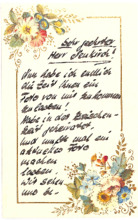 Sehr geehrter
Herr Jeukisch!
Nun habe ich endlich
die Zeit Ihnen ein
Foto von mir zukommen
zu lassen!
Habe in der
geheiratet
und mußte erst ein
aktuelles Foto
machen
lassen
wir sehen
uns be-